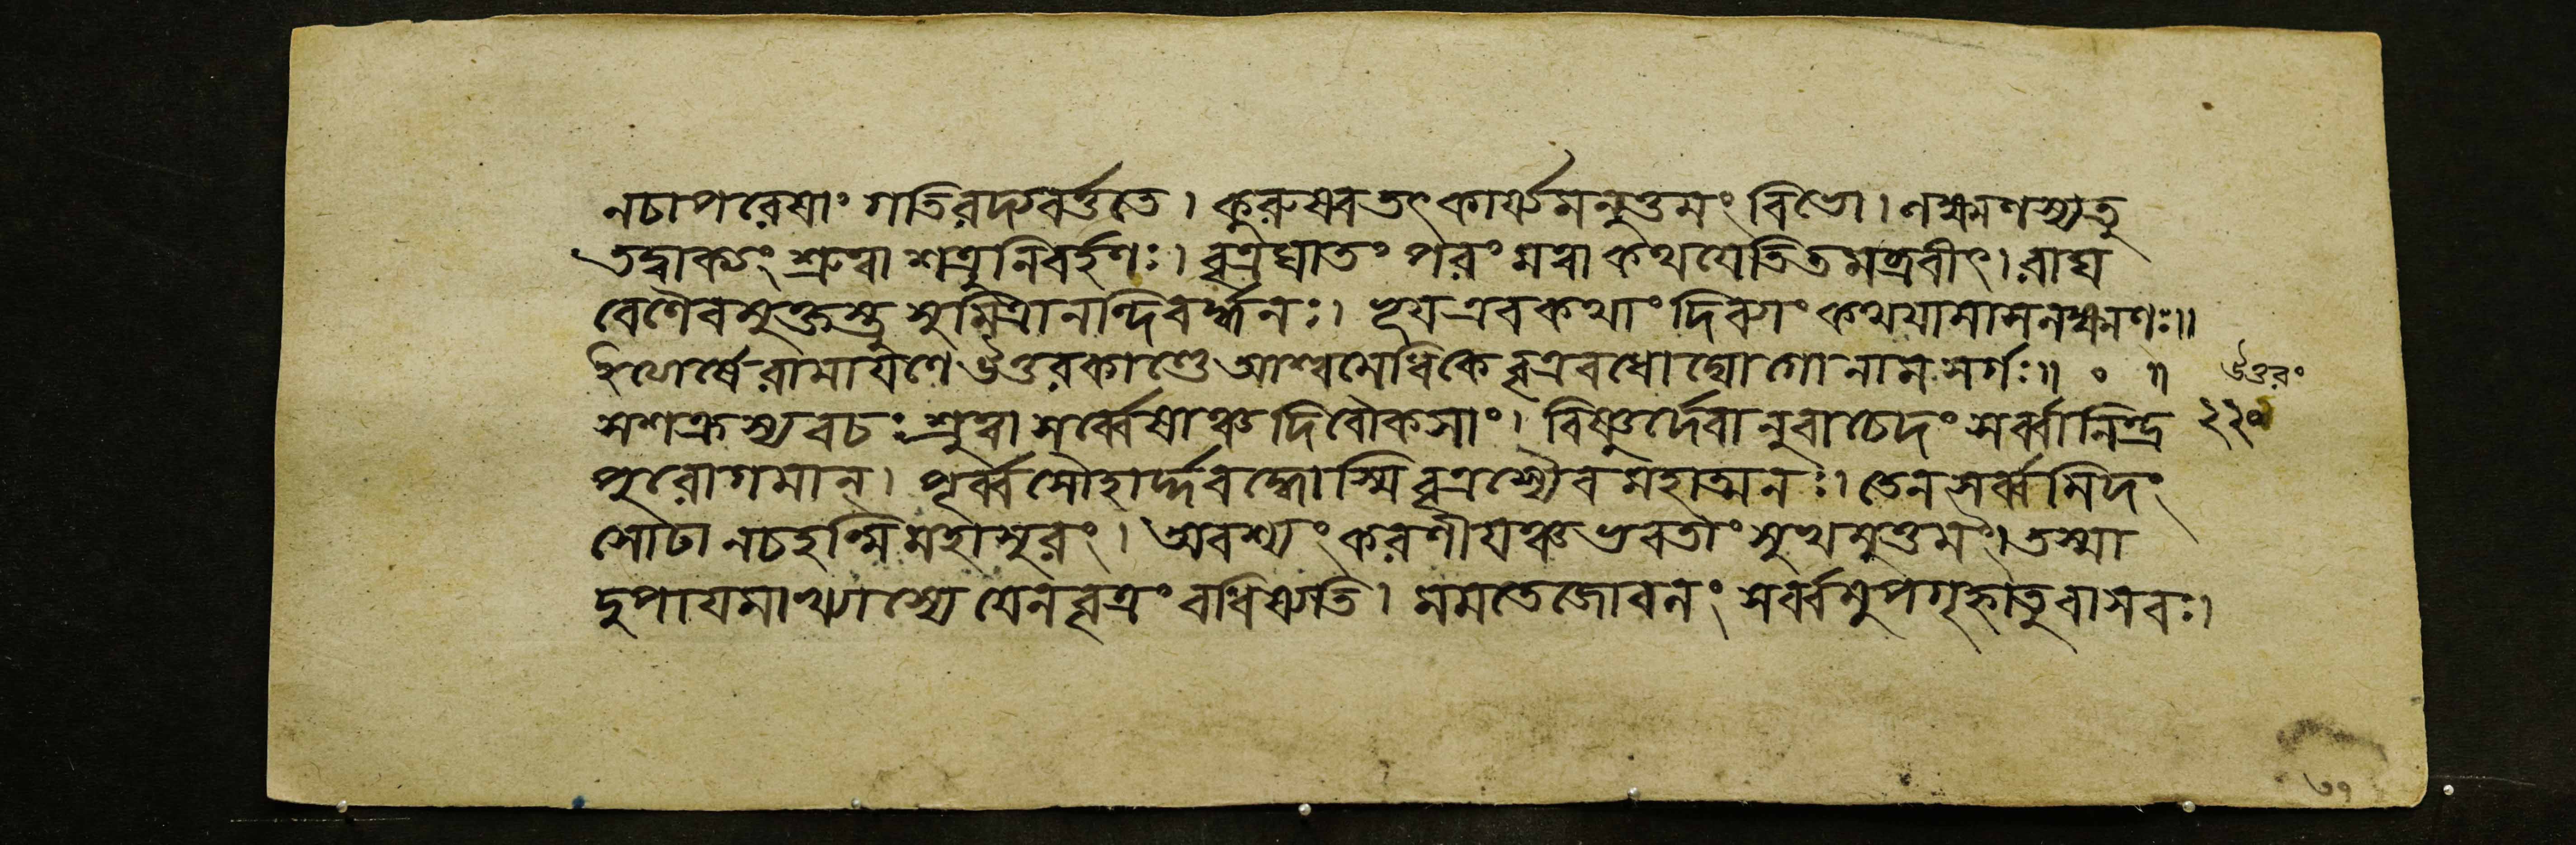 নচাপরেষাং গতিরদ্যবর্ত্ততে। কুরুষ্বতৎকার্য্যমনুত্তমং বিভো। লক্ষ্মণস্যতু
তদ্বাক্যং শ্রুত্বা শত্রুনিবর্হণঃ। বৃত্রঘাতং পরং মত্বা কথযেতিতমব্রবীৎ। রাঘ
বেণৈবমুক্তস্তু সুমিত্রানন্দিবর্দ্ধনঃ। ভূয এবকথাং দিব্যাং কথযামাসলক্ষ্মণঃ॥
ইত্যার্ষেরামাযণে উত্তরকাণ্ডে আশ্বমেধিকে বৃত্রবধোদ্যোগোনামসর্গঃ॥ ॰ ॥
সশক্রস্যবচঃ শ্রুত্বা সর্ব্বেষাঞ্চদিবৌকসাং। বিষ্ণুর্দেবানুবাচেদং সর্ব্বানিন্দ্র
পুরোগমান্। পূর্ব্বসৌহার্দ্দবদ্ধোস্মিবৃত্রস্যৈবমহাত্মনঃ। তেনসর্ব্বমিদং
সোঢা নচহন্মিমহাসুরং। অবশ্যং করণীযঞ্চভবতাং সুখমুত্তমং। তস্মা
দুপাযমাখ্যাস্যে যেনবৃত্রং বধিষ্যতি। মমতেজোবলং সর্ব্বমুপগৃহ্ণাতুবাসবঃ।
উত্তরং